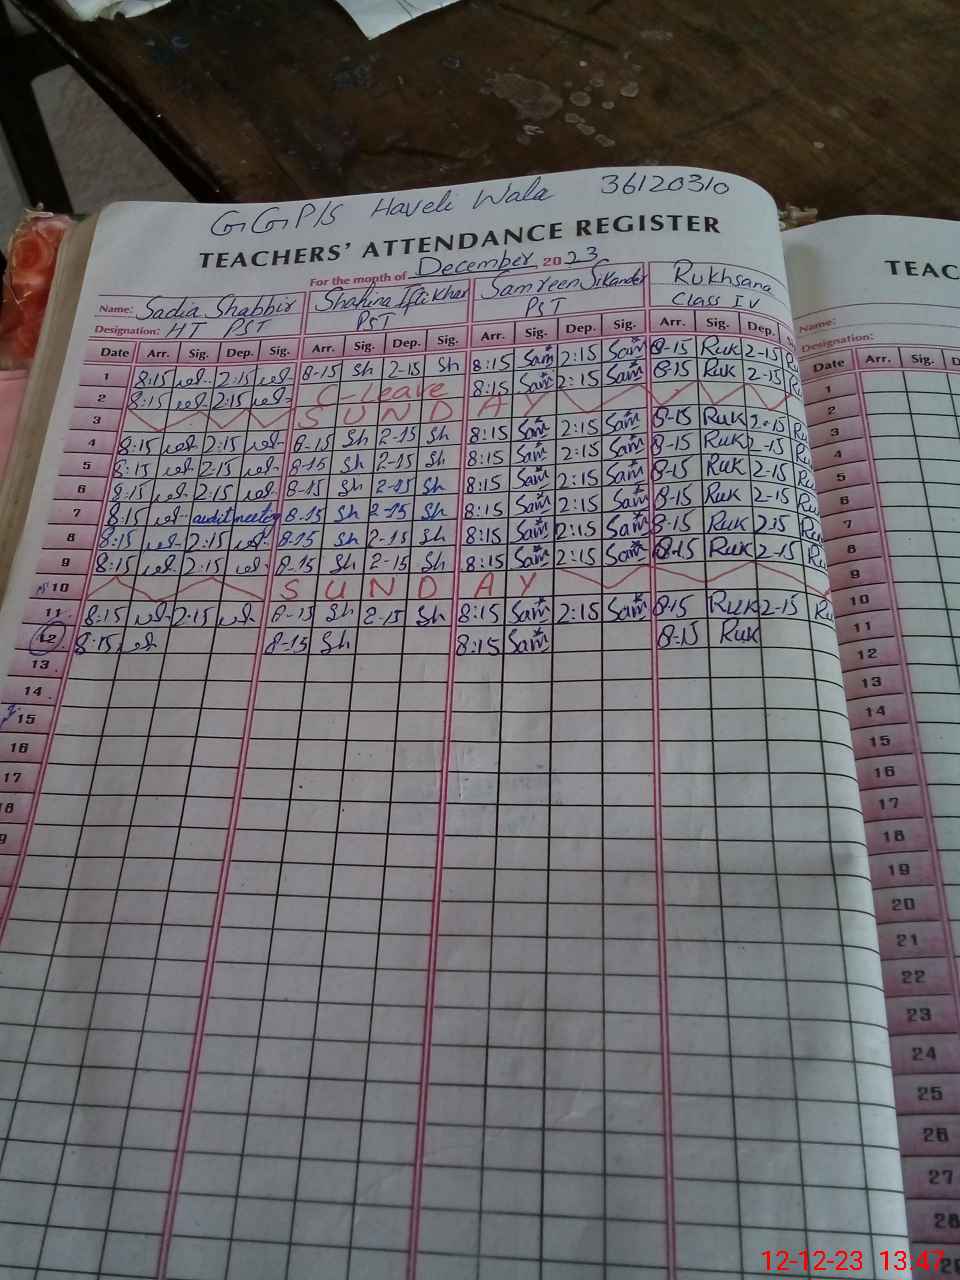 GGP/S Haveli Wala 36120310
TEACHERS' ATTENDANCE REGISTER
For the month of December 2023
Name: Sadia Shabbir Shahina Iftikhar Samreen Sikander Rukhsana
Designation: HT PST PST PST Class IV
Date Arr. Sig. Dep. Sig. Arr. Sig. Dep. Sig. Arr. Sig. Dep. Sig. Arr. Sig. Dep.
1 8:15 2:15 8-15 Sh 2-15 Sh 8:15 Sam 2:15 Sam 8-15 Ruk 2-15
2 8:15 2:15 C-Leave 8:15 Sam 2:15 Sam 8-15 Ruk 2-15
3 SUNDAY
4 8:15 2:15 8-15 Sh 2-15 Sh 8:15 Sam 2:15 Sam 8-15 Ruk 2-15
5 8:15 2:15 8-15 Sh 2-15 Sh 8:15 Sam 2:15 Sam 8-15 Ruk 2-15
6 8:15 2:15 8-15 Sh 2-15 Sh 8:15 Sam 2:15 Sam 8-15 Ruk 2-15
7 8:15 audit meeting 8-15 Sh 2-15 Sh 8:15 Sam 2:15 Sam 8-15 Ruk 2-15
8 8:15 2:15 8-15 Sh 2-15 Sh 8:15 Sam 2:15 Sam 8-15 Ruk 2-15
9 8:15 2:15 8-15 Sh 2-15 Sh 8:15 Sam 2:15 Sam 8-15 Ruk 2-15
10 SUNDAY
11 8:15 2:15 8-15 Sh 2-15 Sh 8:15 Sam 2:15 Sam 8-15 Ruk 2-15 Ru
12 8:15 8-15 Sh 8:15 Sam 8-15 Ruk
13
14
15
16
17
18
TEAC
Name:
Designation:
Date Arr. Sig.
1
2
3
4
5
6
7
8
9
10
11
12
13
14
15
16
17
18
19
20
21
22
23
24
25
26
27
28
12-12-23 13:47